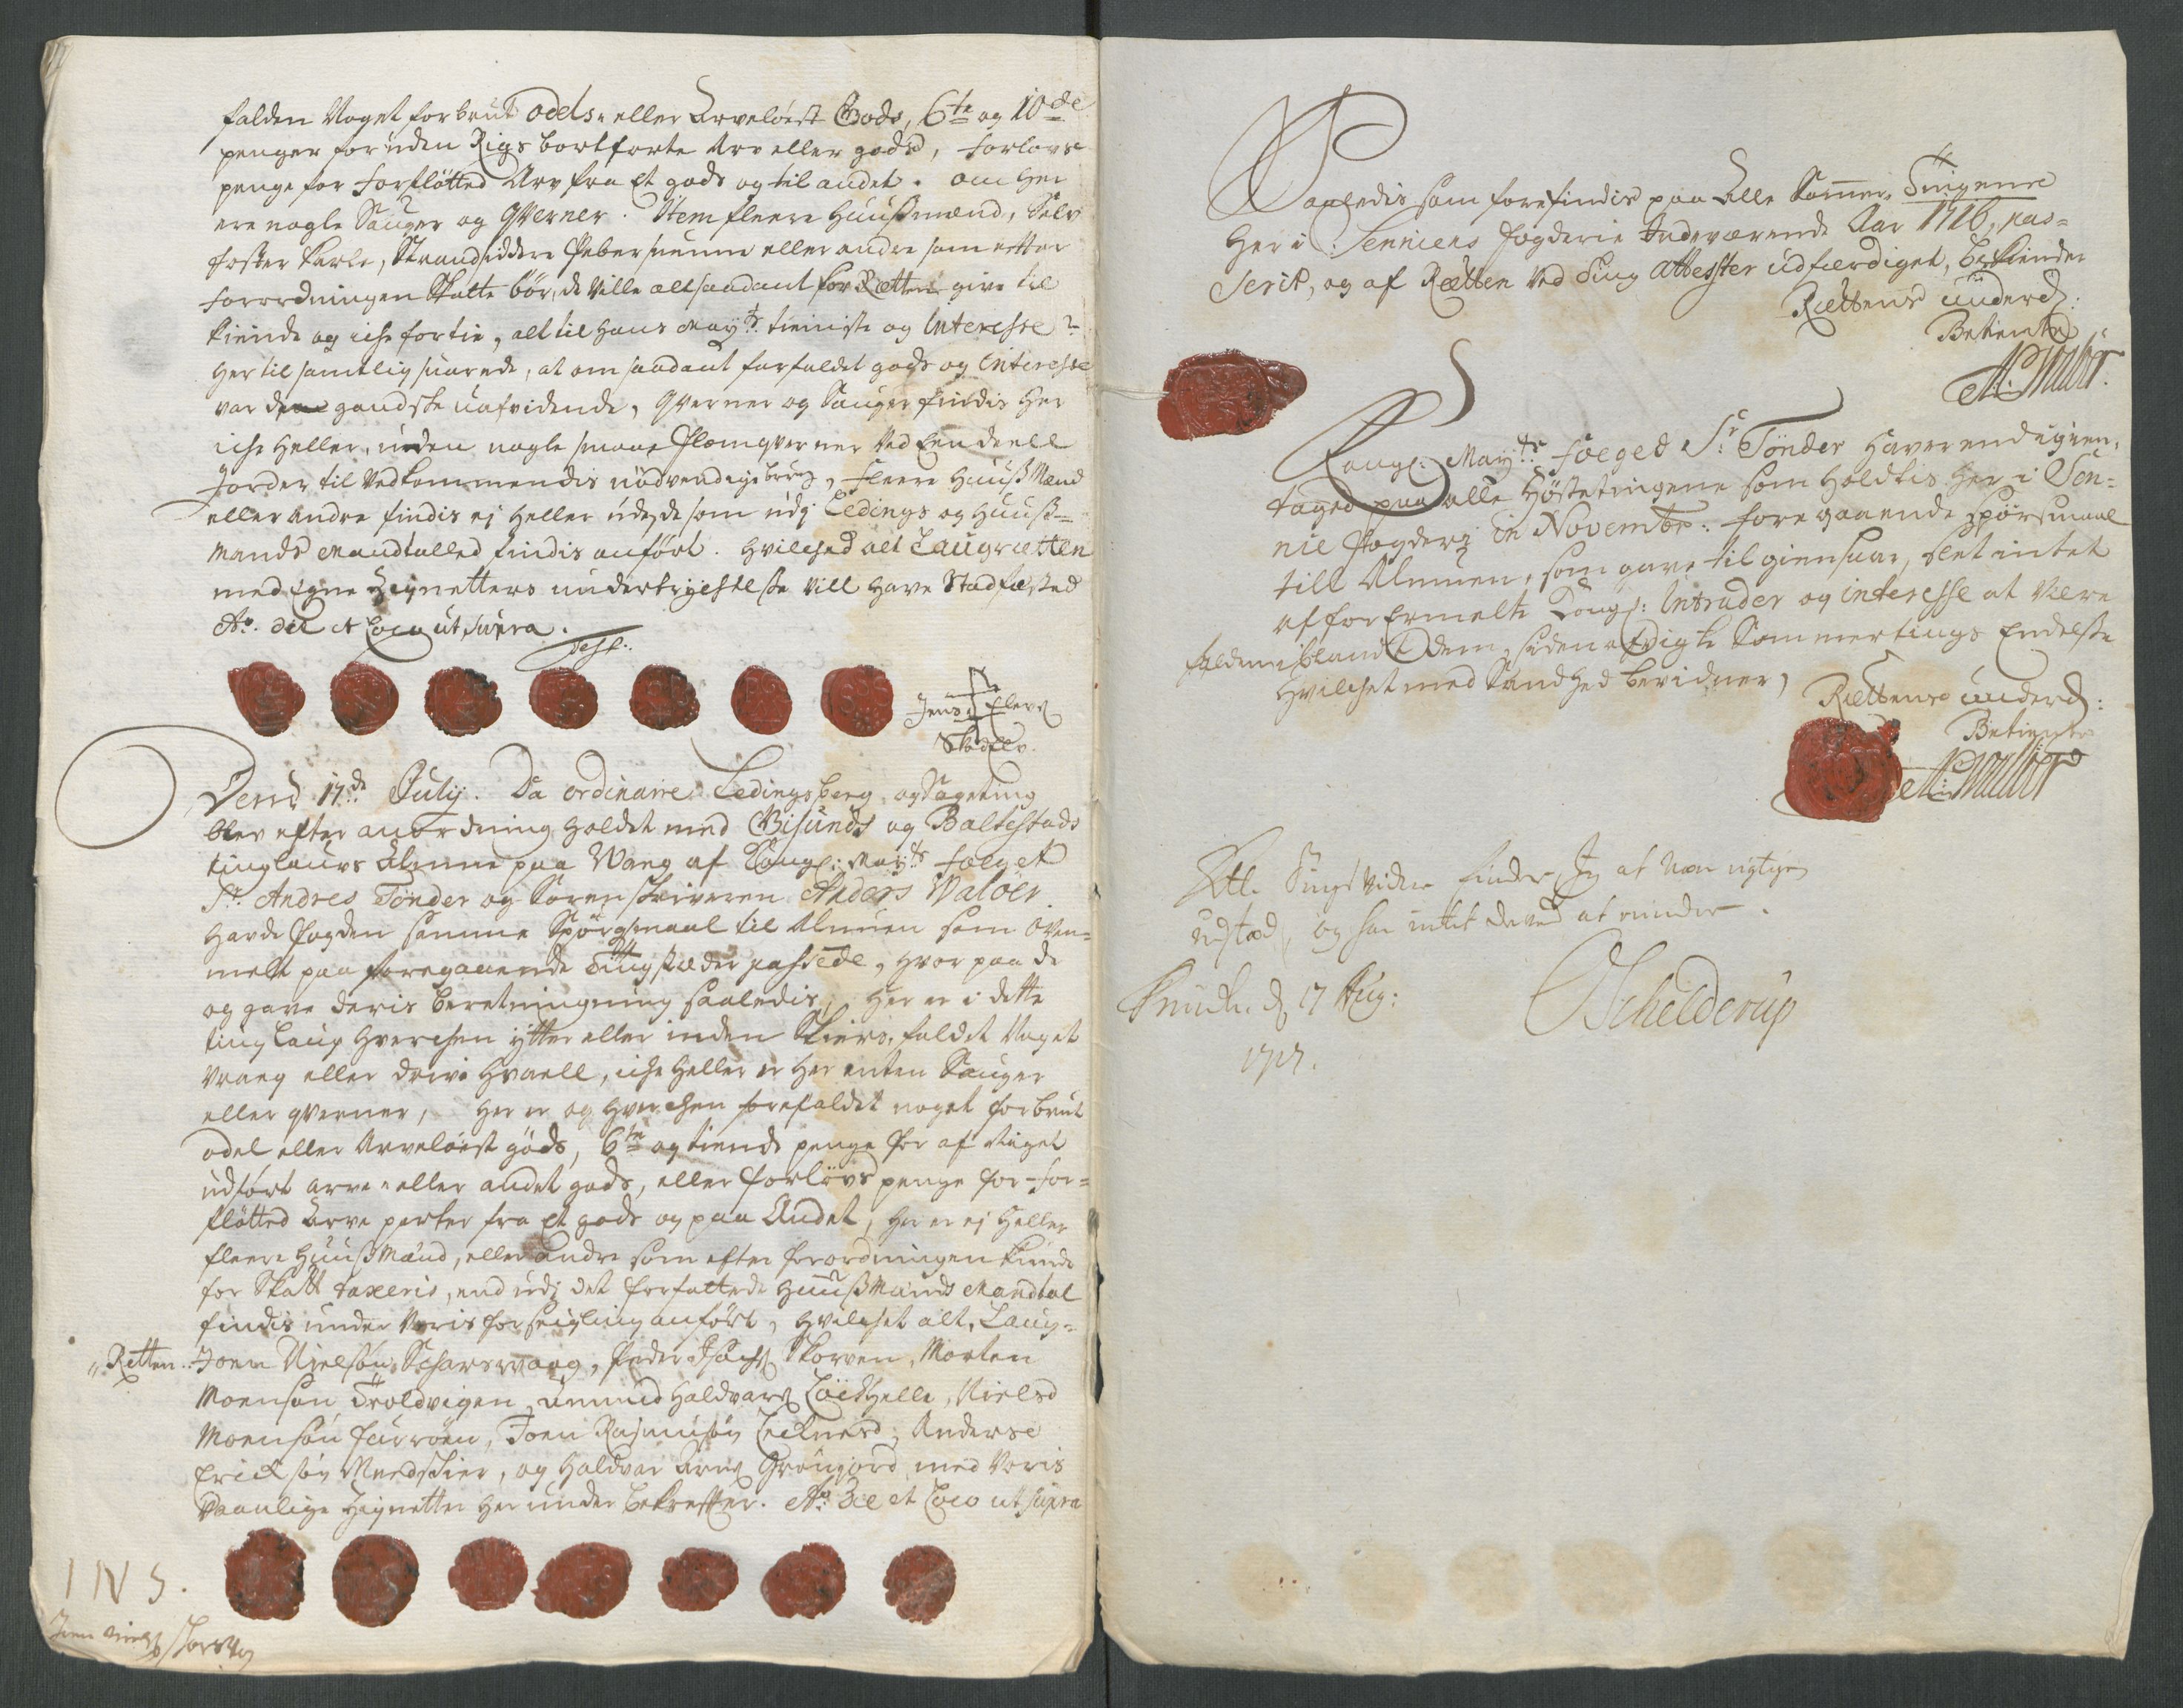 falden Noget forbrut odels- eller Arveløest Gods, 6te og 10de
penger for uden Rigs bortførte Arv eller gods, forlovs
penge for forfløtted Arv fra et gods og til andet. om her
ere nogle Sauger og Qverner. Item fleere Huussmænd, Selv
foster Karle, Strandsiddere Pebersvenne eller andre som efter
forordningen Skatte bør, de ville alt saadant for Retten give til
kiende og iche fortie, alt til Hans Mayts tieniste og Interesse?
Her til samtlig svarede, at om saadant forfaldet gods og Interesse
var de gandske uafvidende, Qverner og Sauger findis Her
iche Heller, uden nogle smaae Flomqverner ved Een deell
Jorder til vedkommendis nødvendigs brug, fleere Huuss Mænd
eller andre findis ej heller udj de som udj Ledings og Huuss-
mands Mandtalled findis anført. Hvilchet alt Laugrætten
med Egne Zignetters undertrychelse vill Have Stadfæsted
Ao. die et Loco ut supra.
Jens Elevs
Skadelv.
Dend 17de Julij. Da ordinarie Ledingsberg og Sageting
blev efter anordning Holdet med Gisunds og Baltestads
tinglaugs Almue paa Wang af Kongl: Mayts foeget
Sr. Andres Tønder og Sorenskriveren Anders Waløer.
Havde fogden samme Spørgsmaal til Almuen som oven-
melt paa foregaaende Tingstæder passede, Hvor paa de
og gave deris beretningning saaledis, Her er i dette
ting Laug Hverchen ytter eller inden Skiers falden Noget
vraeg eller drive Hvaell, iche Heller er Her enten Sauger
eller qverner, Her er og Hverchen forefaldet noget forbrut
odel eller Arveløest gods, 6te og tiende penge for af Riget
udført arve- eller andet gods, eller forlovs penge for for-
fløtted Arve parter fra et gods og paa Andet, Her er ej Heller
fleere Huuss Mænd, eller andre som efter forordningen kunde
for Skatt taxeris, end udj det forfattede Huuss Mands Mandtal
findis under voris forseigling anført, Hvilchet alt, Laug-
Retten Joen Nielsøn Scharsvaag, Peder Isachs Skorven, Morten
Moensøn Troldvigen, Amund Haldvars Løchhelle, Niels
Moensøn furrøen, Joen Rasmusøn Lechnes, Anders
Erichsøn Medskier, og Haldvar Arns Grønjord med voris
vaanlige Zignetter Her under bekrefter. Ao. die et Loco ut supra
INS.
Joen Niels Skarsvog
Saaledis som forefindis paa Alle Sommer Tingene
Her i Senniens fogderie Indeværende Aar 1716, pas-
serit, og af Rætten ved Ting Attester udfærdiget, bekiender
Rættens underd:
Betiente
A: Waløer.
Kongl: Mayts foeged Sr. Tønder Haver end igien-
taged paa alle Høstetingene som Holdtis Her i Sen-
nie fogderj in Novembr: foregaaende spørsmaal
till Almuen, som gave til giensvar, slet intet
af forbemelte Kongl: Intrader og interesse at være
falden iblandt dem, siden afvigte Sommertings Endelse
Hvilchet med Sandhed bevidner,
Rættens underd:
Betiente
A: Waløer
tingsvidne finder Jeg at være rigtigen
udstæd, og har intet derved at minde.
d 17 Aug:
1717.
Schelderup